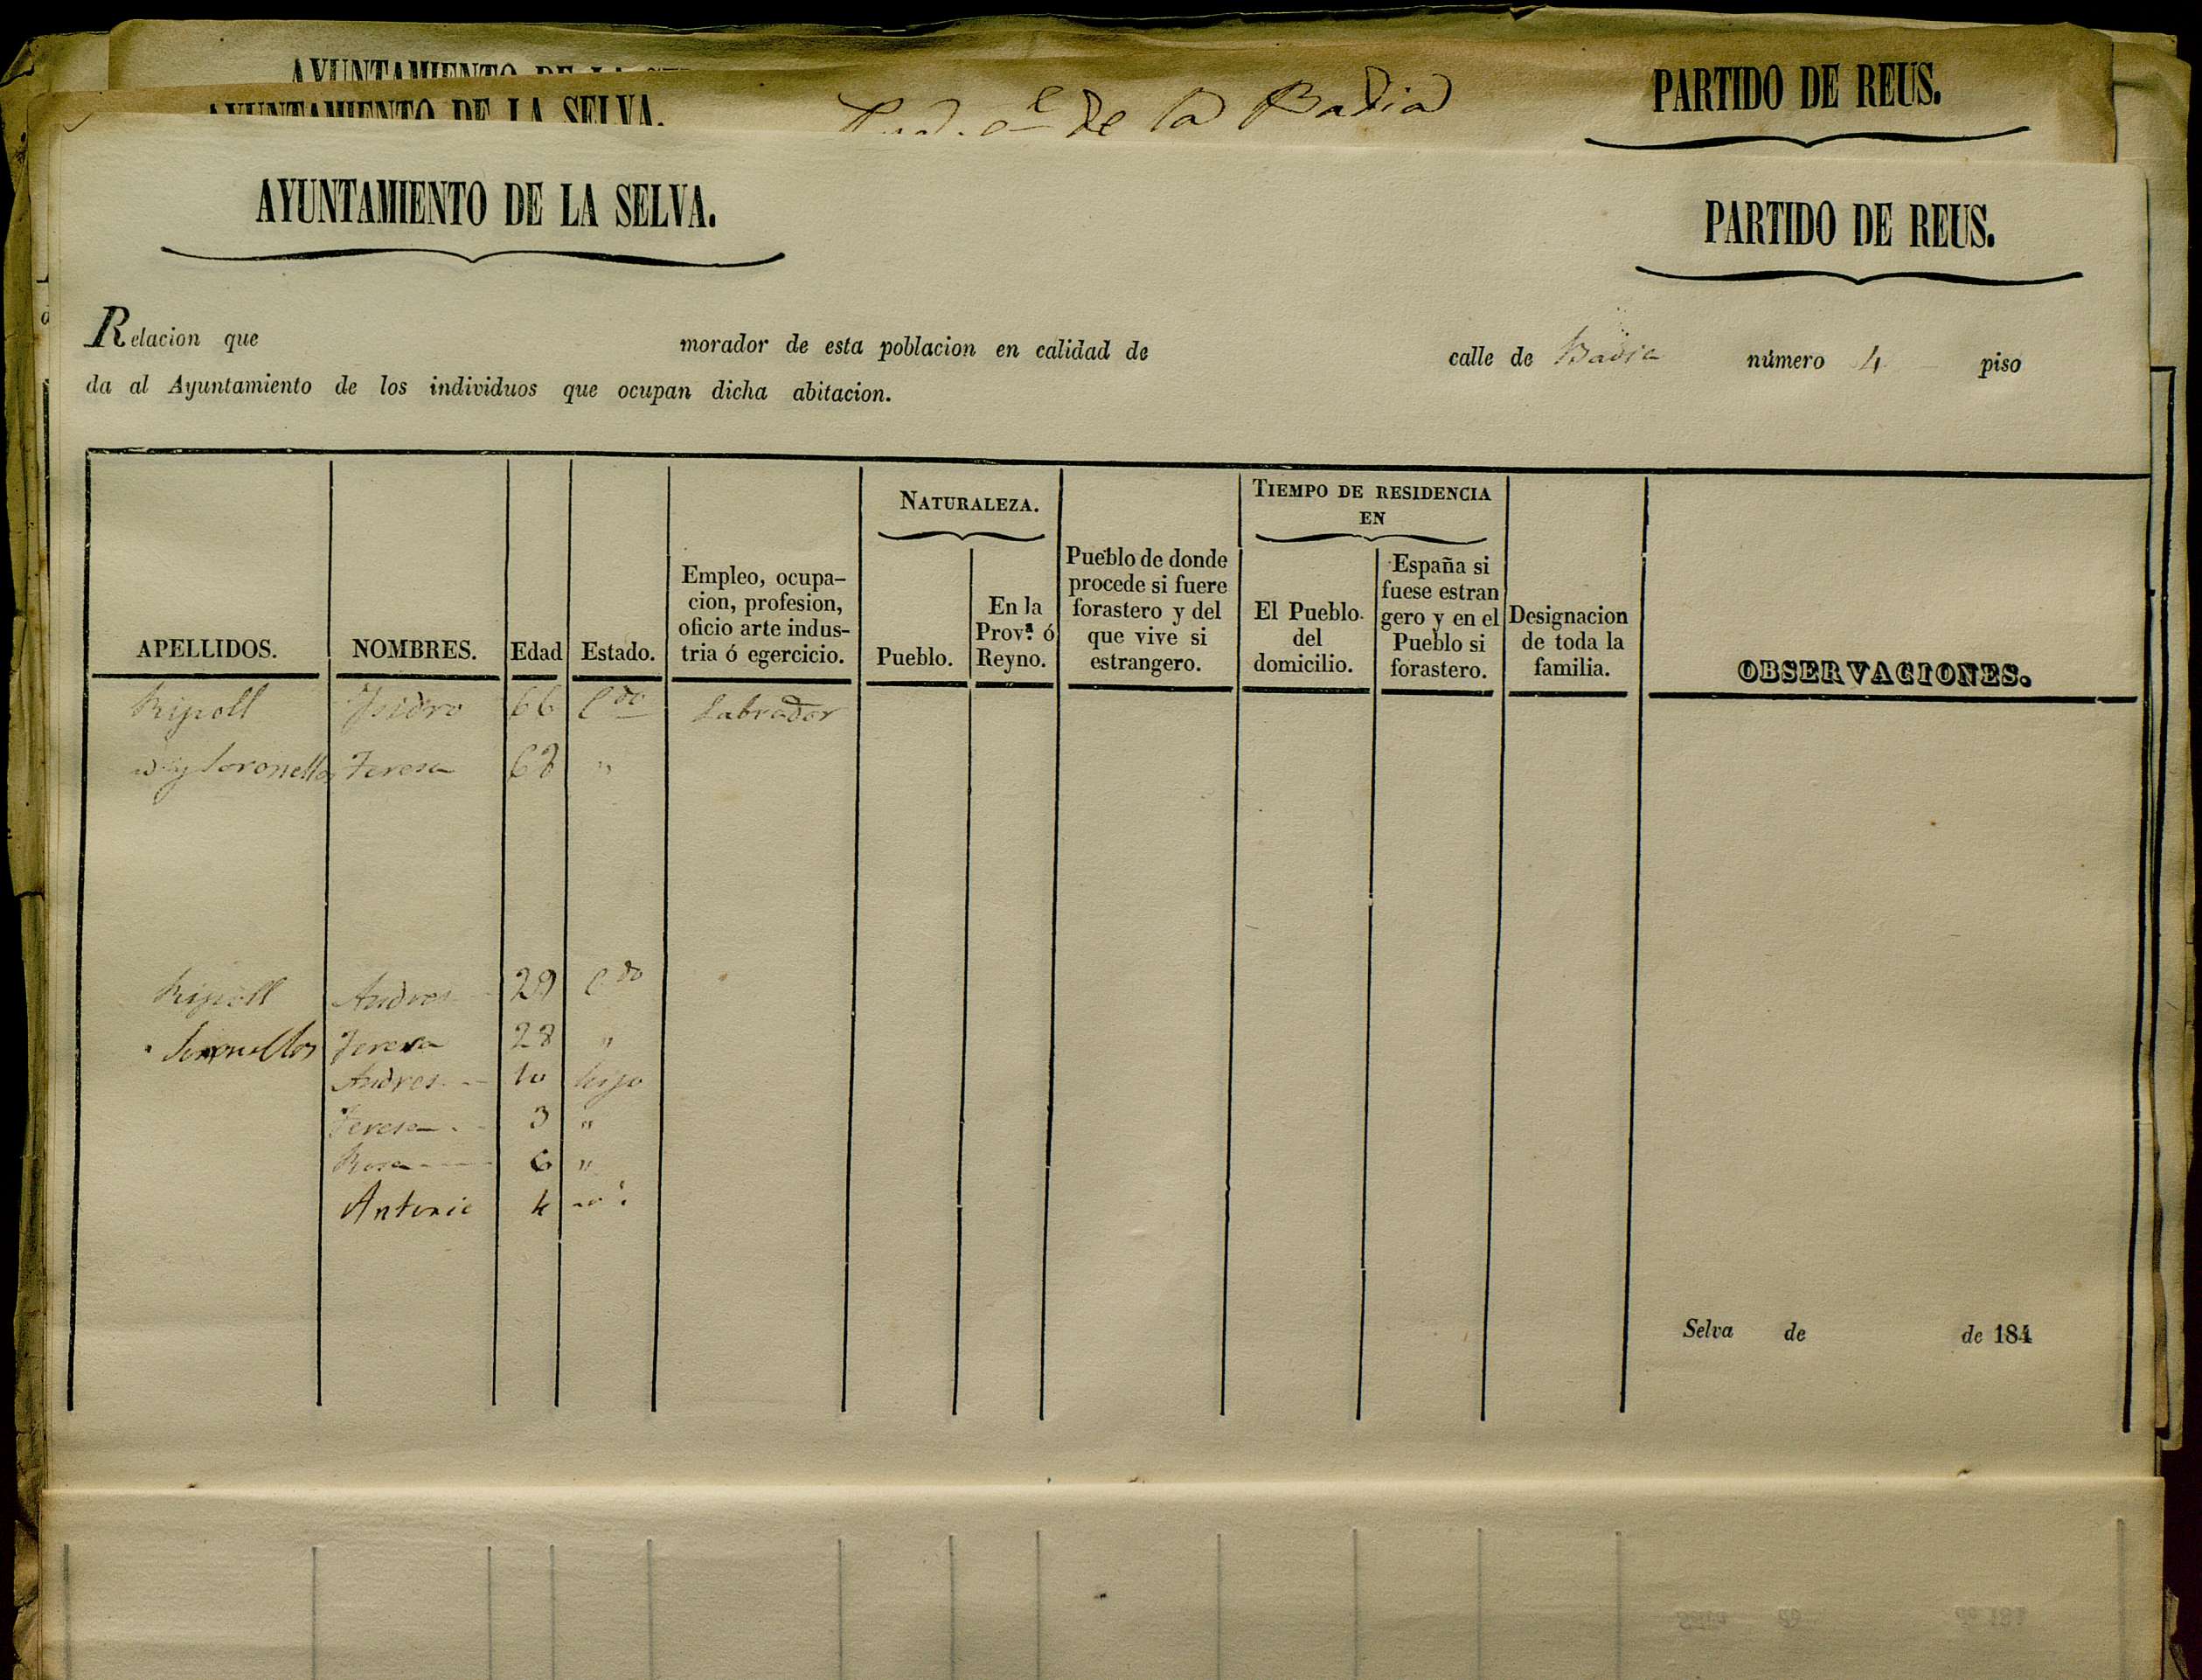 AYUNTAMIENTO DE LA
AYUNTAMIENTO DE LA SELVA.
de la Badia
PARTIDO DE REUS.
AYUNTAMIENTO DE LA SELVA.
PARTIDO DE REUS.
Relacion que morador de esta poblacion en calidad de calle de Badia número 4 piso
da al Ayuntamiento de los individuos que ocupan dicha abitacion.
APELLIDOS.
NOMBRES.
Edad
Estado.
Empleo, ocupa-
cion, profesion,
oficio arte indus-
tria ó egercicio.
NATURALEZA.
Pueblo.
En la
Prov.ª ó
Reyno.
Pueblo de donde
procede si fuere
forastero y del
que vive si
estrangero.
TIEMPO DE RESIDENCIA
EN
El Pueblo
del
domicilio.
España si
fuese estran
gero y en el
Pueblo si
forastero.
Designacion
de toda la
familia.
OBSERVACIONES.
Ripoll Isidro 66 Cdo Labrador
y Soronellas Teresa 68 "
Ripoll Andres 29 Cdo
Soronellas Teresa 28 "
Andres 10 hijo
Teresa 3 "
Rosa 6 "
Antonia 4
Selva de de 184